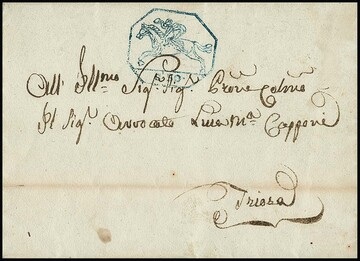 All' Illmo Sig.r Sig.r Prone Colmo
Il Sig.r Avvocato Luca Ma Capponi
Triora